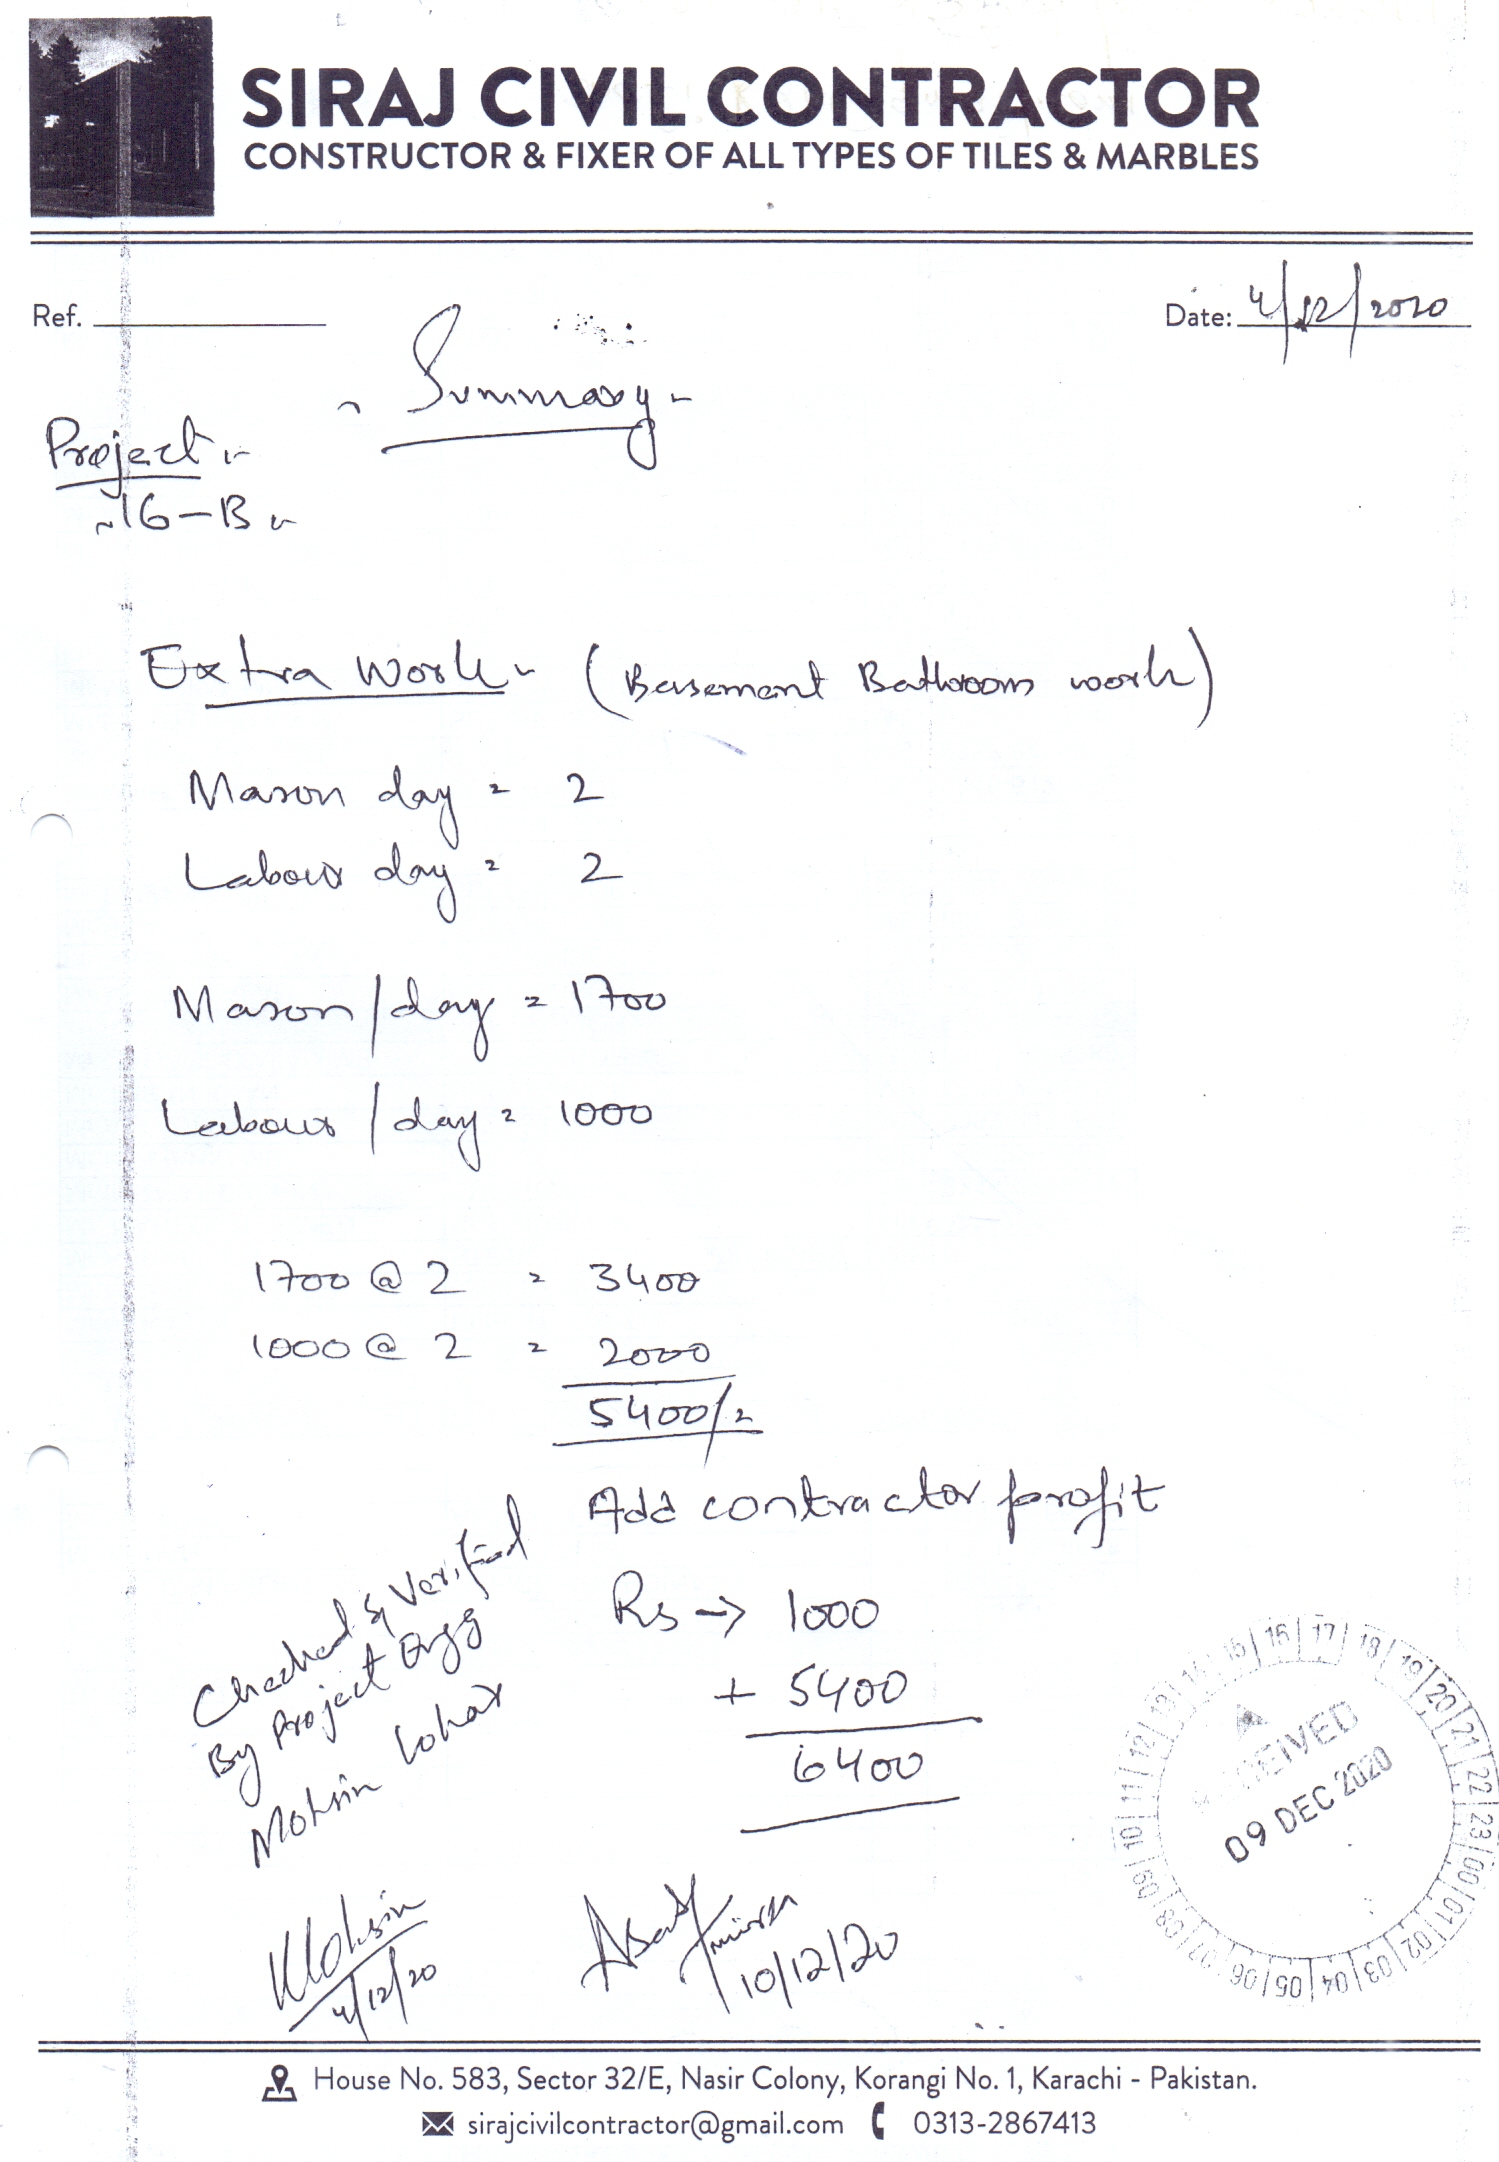 SIRAJ CIVIL CONTRACTOR
CONSTRUCTOR & FIXER OF ALL TYPES OF TILES & MARBLES
Ref.
Date: 4/12/2020
Summary
Project
16-B
Extra Work (Basement Bathroom work)
Mason day = 2
Labour day = 2
Mason/day = 1700
Labour/day = 1000
1700 @ 2 = 3400
1000 @ 2 = 2000
5400/=
Add contractor profit
Rs → 1000
+ 5400
6400
Checked & Verified
By Project Engg
Mohsin Lohar
Mohsin
4/12/20
Asad
10/12/20
RECEIVED
09 DEC 2020
15 16 17 18 19 20 21 22 23 00 01 02 03 04 05 06 07 08 09 10 11 12 13 14
House No. 583, Sector 32/E, Nasir Colony, Korangi No. 1, Karachi - Pakistan.
sirajcivilcontractor@gmail.com 0313-2867413